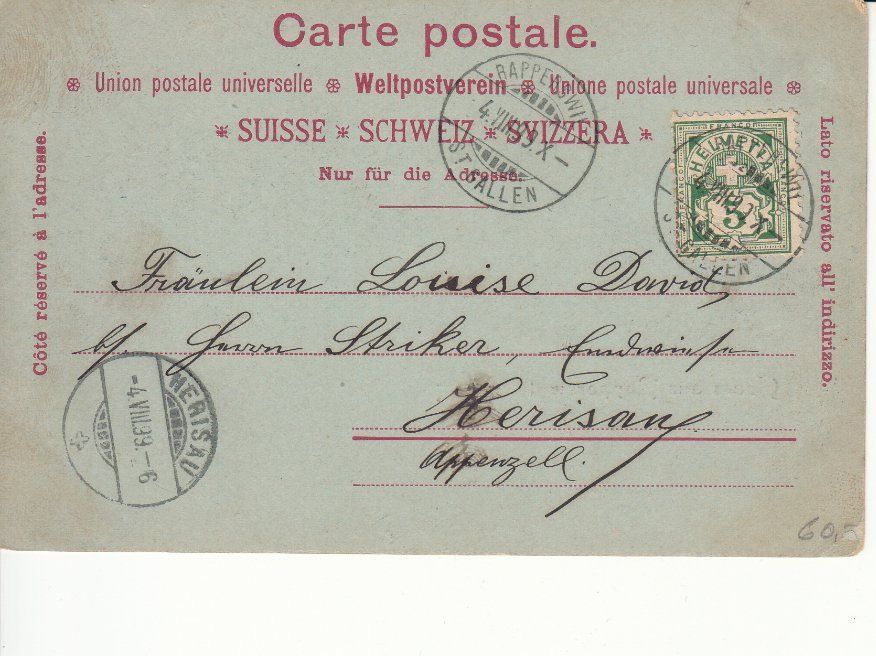 Carte postale.
❊ Union postale universelle ❊ Weltpostverein ❊ Unione postale universale ❊
* SUISSE * SCHWEIZ * SVIZZERA *
Nur für die Adresse.
Côté réservé à l'adresse.
Lato riservato all' indirizzo.
RAPPERSWIL
4.VIII.99.X-
ST. GALLEN
FRANCO
HELVETIA
5
ST. GALLEN
Fräulein Louise David,
b/. Herrn Striker,
Herisau
Appenzell.
HERISAU
-4.VIII.99.-6
60,-